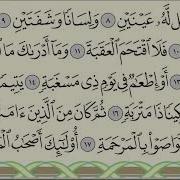 ل لَّهُۥ عَيْنَيْنِ ٨ وَلِسَانًا وَشَفَتَيْنِ ٩
١٠ فَلَا ٱقْتَحَمَ ٱلْعَقَبَةَ ١١ وَمَآ أَدْرَىٰكَ مَا
١٣ أَوْ إِطْعَٰمٌ فِى يَوْمٍ ذِى مَسْغَبَةٍ ١٤ يَتِيمًا
كِينًا ذَا مَتْرَبَةٍ ١٦ ثُمَّ كَانَ مِنَ ٱلَّذِينَ ءَامَ
وَاصَوْا۟ بِٱلْمَرْحَمَةِ ١٧ أُو۟لَٰٓئِكَ أَصْحَٰبُ